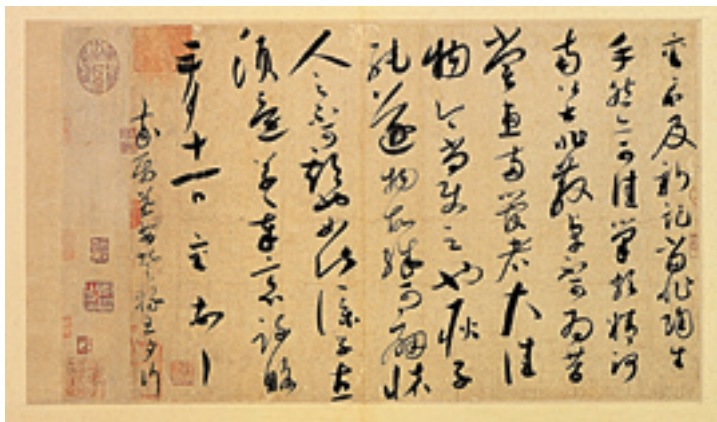 示及新記當非陶生
手然亦可佳筆頗精
非散卓不可為昔
嘗惠兩管者大佳
物今尚使之也耿子
純遂物故殊可痛懷
人之不可期也如此僕子直
須還草草奉意疏略
正月十一日襄頓首
家屬並安楚栘三兩日行